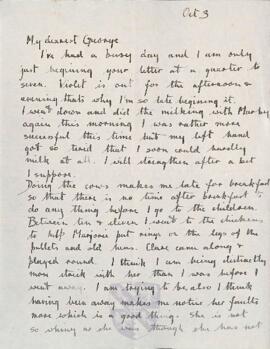 Oct 3
My dearest George
I've had a busy day and I am only
just beginning your letter at a quarter to
seven. Violet is out for the afternoon &
evening that's why I'm so late beginning it.
I went down and did the milking with
again this morning I was rather more
successful this time but my left hand
got so tired that I soon could hardly
milk at all. I will strengthen after a bit
I suppose.
Doing the cows makes me late for breakfast
so that there is no time after breakfast to
do any thing before I go to the children.
Between ten & eleven I went to the chickens
to help Marjorie put rings on the legs of the
pullets and old hens. Clare came along &
played round. I think I am being distinctly
more strict with her than I was before I
went away. I am trying to be also I think
having been away makes me notice her faults
more which is a good thing. She is not
so whiny as she was though she has not